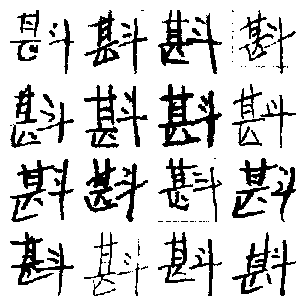 斟斟斟斟
斟斟斟斟
斟斟斟斟
斟斟斟斟